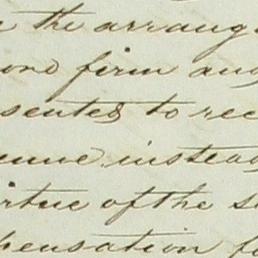 the arrang
ond firm and
sented to rec
enue instead
irtue of the s
pensation fo